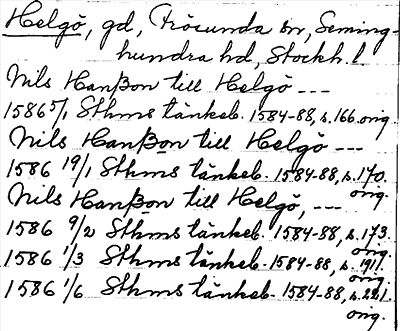 Helgö, gd, Frösunda sn, Seming-
hundra hd, Stockh. l.
Nils Hanßon till Helgö ---
1586 5/1 Sthms tänkeb. 1584-88, s. 166. orig.
Nils Hanßon till Helgö ---
1586 19/1 Sthms tänkeb. 1584-88, s. 170.
orig.
Nils Hanßon till Helgö, ---
1586 9/2 Sthms tänkeb. 1584-88, s. 173.
orig.
1586 1/3 Sthms tänkeb. 1584-88, s. 191.
orig.
1586 1/6 Sthms tänkeb. 1584-88, s. 221.
orig.